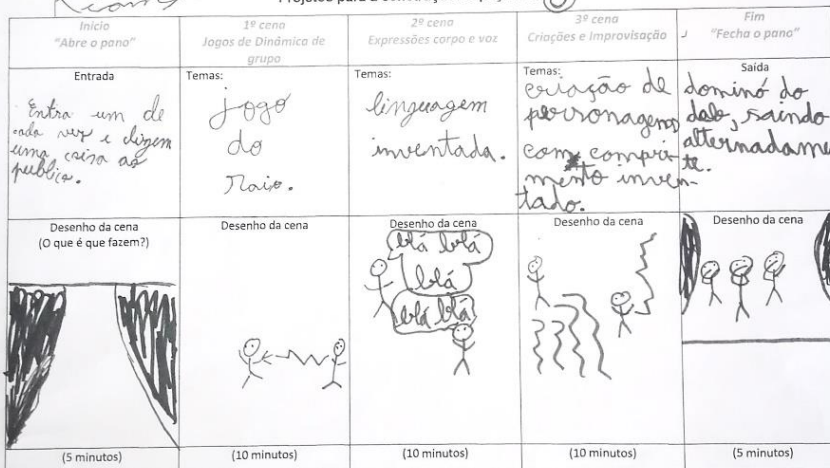 Início
"Abre o pano"
1ª cena
Jogos de Dinâmica de
grupo
2ª cena
Expressões corpo e voz
3ª cena
Criações e Improvisação
Fim
"Fecha o pano"
Entrada
Entra um de
cada vez e dizem
uma coisa ao
publico.
Temas:
jogo
do
raio.
Temas:
linguagem
inventada.
Temas:
criação de
personagens
com compri-
mento inven-
tado.
Saída
dominó do
dab, saindo
alternadame
te.
Desenho da cena
(O que é que fazem?)
Desenho da cena
Desenho da cena
blá blá
blá
blá blá
Desenho da cena
Desenho da cena
(5 minutos)
(10 minutos)
(10 minutos)
(10 minutos)
(5 minutos)